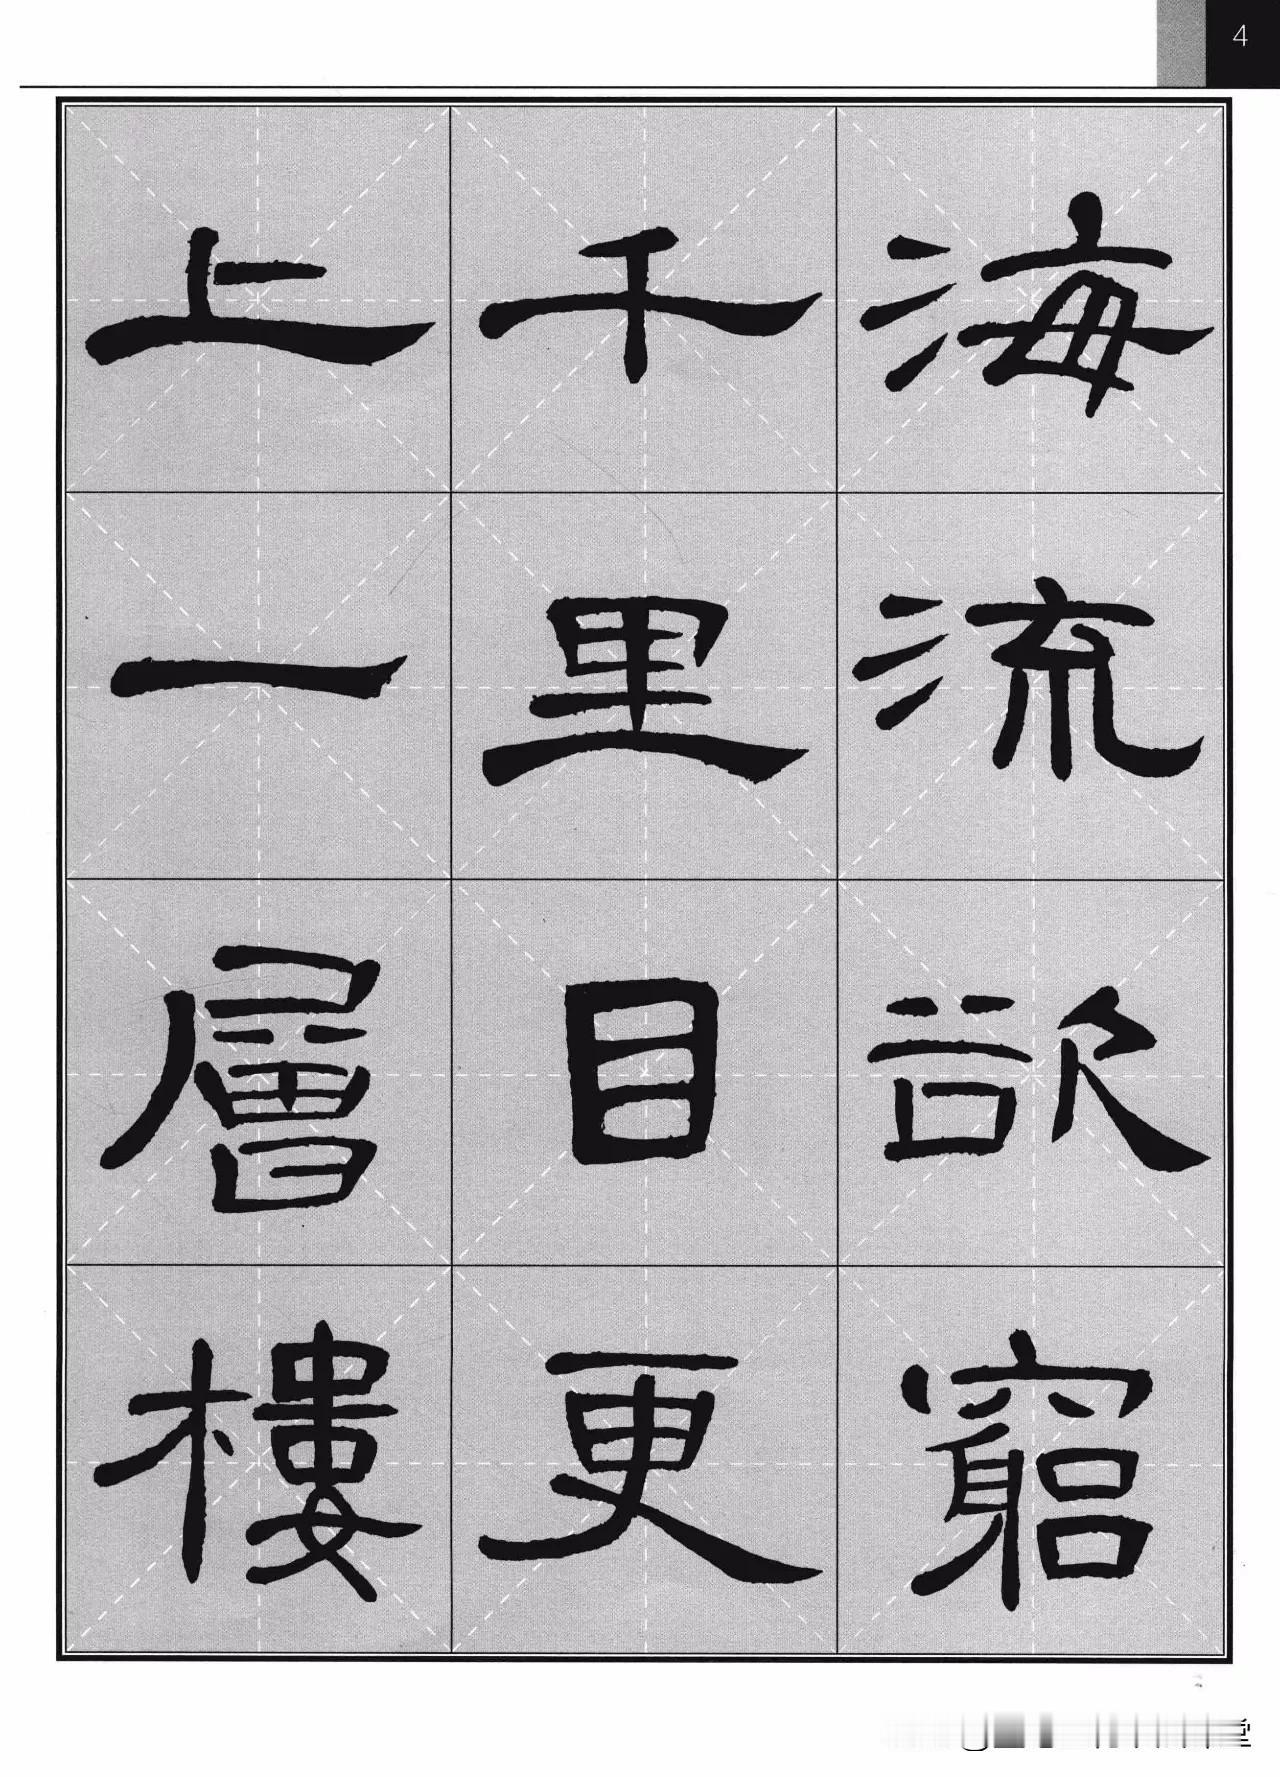 4
海流欲窮
千里目更
上一層樓